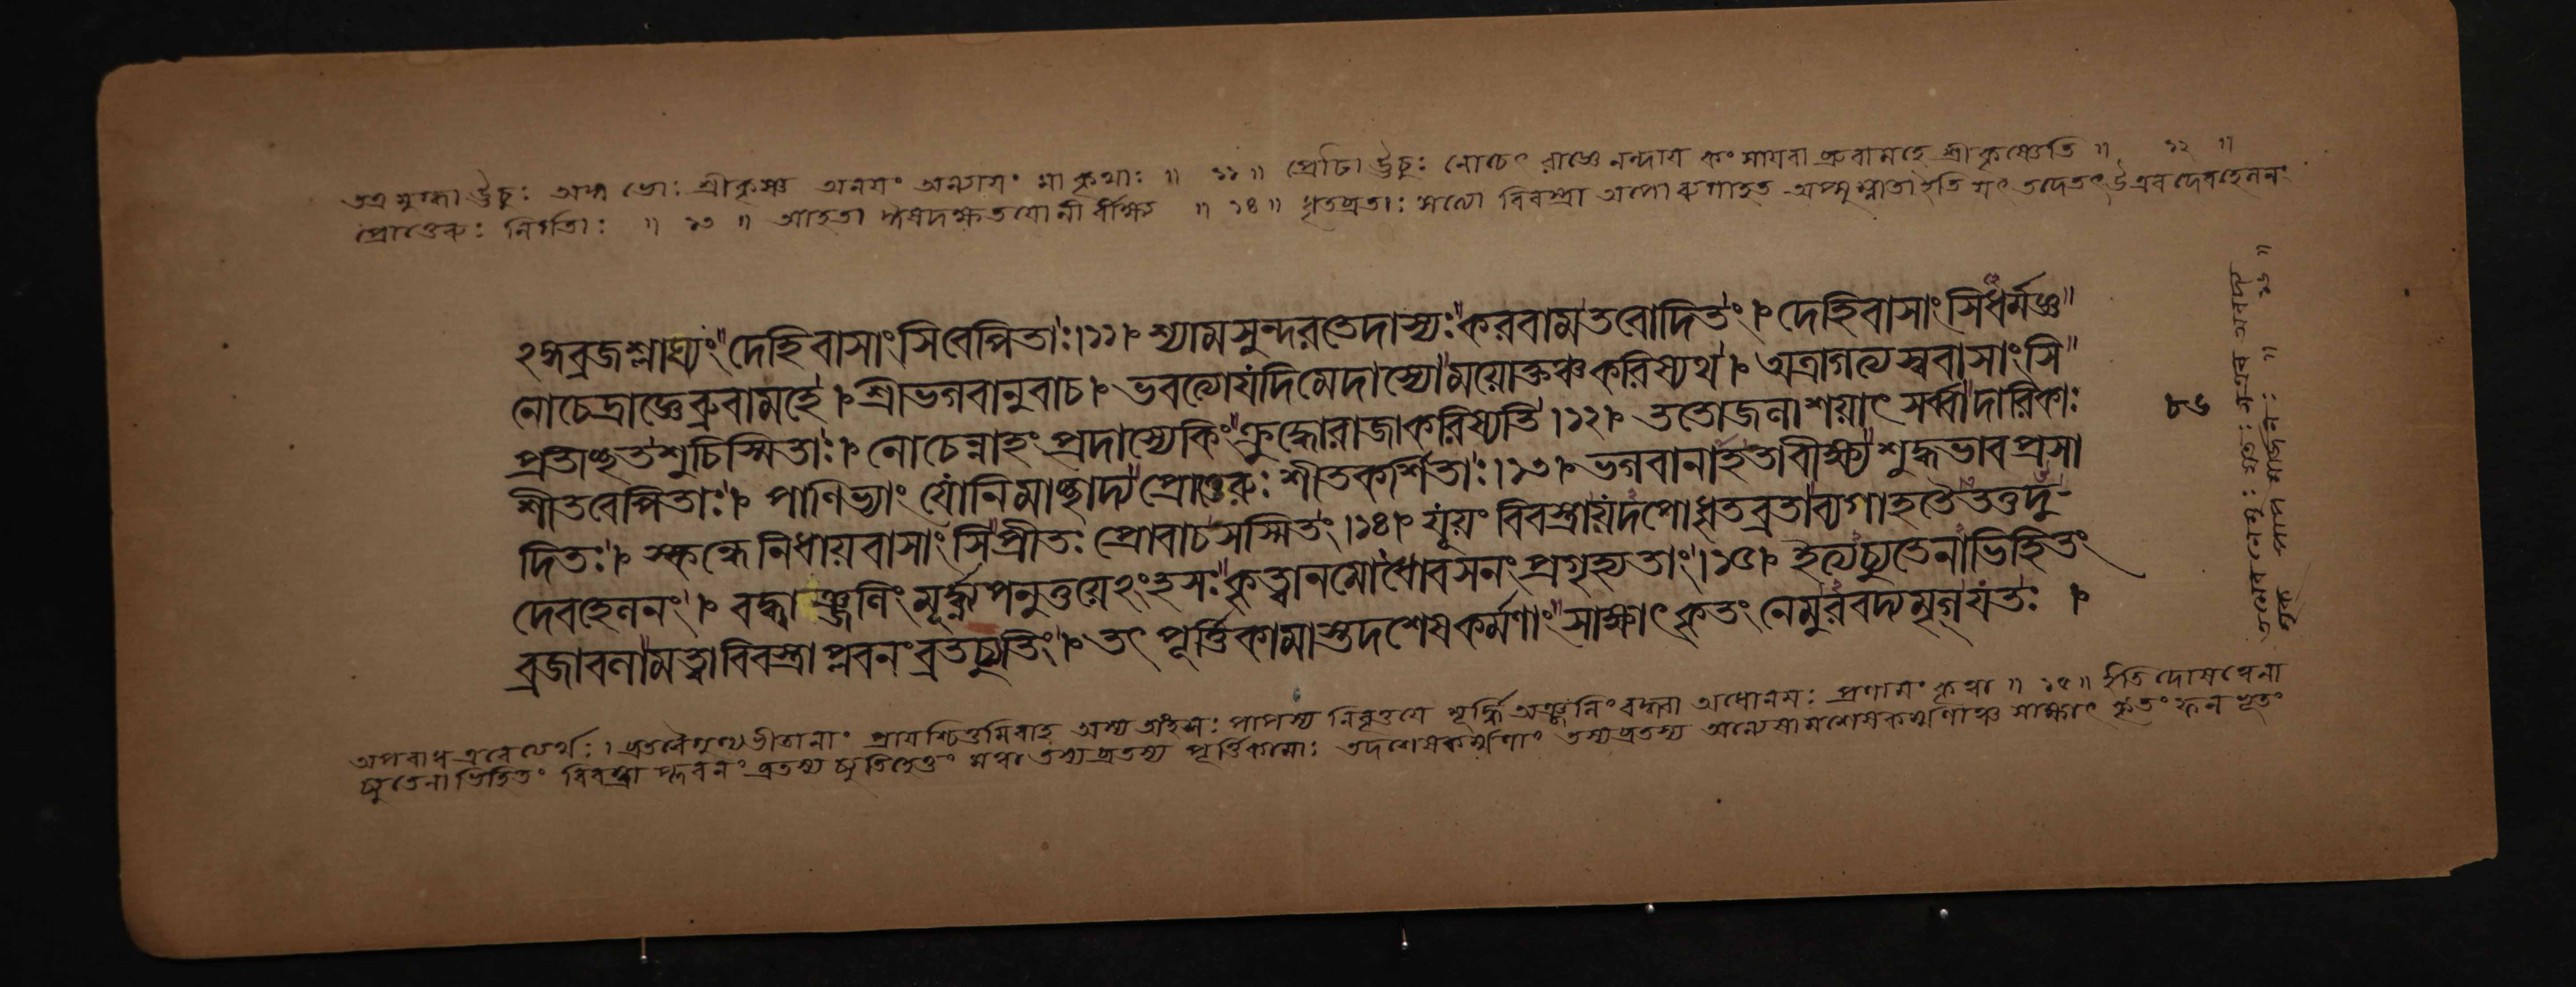 তত্র মুগ্ধা ঊচুঃ অঙ্গ ভোঃ শ্রীকৃষ্ণ অনয়ং অন্যায়ং মা কৃথাঃ ॥ ১১ ॥ প্রৌঢ়া ঊচুঃ নোচেৎ রাজ্ঞে নন্দায় কংসায়বা ব্রুবামহে শ্রীকৃষ্ণেতি ॥ ১২ ॥
প্রোত্তেরুঃ নির্গতাঃ ॥ ১৩ ॥ আহতা ঈষদক্ষতযোনী র্বীক্ষ্য ॥ ১৪ ॥ ধৃতব্রতাঃ সত্যো বিবস্ত্রা অপো ব্যগাহত অপ্সুস্নাতা ইতি যৎ তদেতৎ উ এব দেবহেলনং
ঽঙ্গব্রজশ্লাঘ্যং দেহিবাসাংসিবেপিতাঃ।১১। শ্যামসুন্দরতেদাস্যঃ করবামতবোদিতং। দেহিবাসাংসিধর্মজ্ঞ
নোচেদ্রাজ্ঞেব্রুবামহে। শ্রীভগবানুবাচ। ভবত্যোযদিমেদাস্যো ময়োক্তঞ্চকরিষ্যথ। অত্রাগত্যস্ববাসাংসি
প্রতীচ্ছতশুচিস্মিতাঃ। নোচেন্নাহংপ্রদাস্যেকিং ক্রুদ্ধোরাজাকরিষ্যতি।১২। ততোজলাশয়াৎ সর্ব্বাদারিকাঃ
শীতবেপিতাঃ। পাণিভ্যাং যোনিমাচ্ছাদ্য প্রোত্তেরুঃ শীতকর্শিতাঃ।১৩। ভগবানাহতাবীক্ষ্য শুদ্ধভাবপ্রসা
দিতঃ। স্কন্ধেনিধায়বাসাংসিপ্রীতঃ প্রোবাচসস্মিতং।১৪। যূয়ং বিবস্ত্রাযদপোধৃতব্রতাব্যগাহতৈতত্তদু-
দেবহেলনং। বদ্ধ্বাঞ্জলিংমূর্দ্ধ্ন্যপনুত্তয়েঽংহসঃ কৃত্বানমোধোবসনংপ্রগৃহ্যতাং।১৫। ইত্যচ্যুতেনাভিহিতং
ব্রজাবলামত্বাবিবস্ত্রাপ্লবনংব্রতচ্যুতিং। তৎ পূর্ত্তিকামাস্তদশেষকর্মণাং সাক্ষাৎকৃতংনেমুরবদ্যমৃগ্‌যতঃ।
৮৬
অপরাধ এবেত্যর্থঃ। ব্রতবৈগুণ্যভীতানাং প্রায়শ্চিত্তমিবাহ অস্য অংহসঃ পাপস্য নিবৃত্তয়ে মূর্দ্ধ্নি অঞ্জলিং বদ্ধ্বা অধোনমঃ প্রণামং কৃত্বা ॥ ১৫ ॥ ইতি দোষত্বেনা
চ্যুতেনাভিহিতং বিবস্ত্রাপ্লবনং ব্রতস্য চ্যুতিহেতুং মত্বা তস্যব্রতস্য পূর্ত্তিকামাঃ তদশেষকর্ম্মণাং তস্যব্রতস্য অন্যেষামশেষকর্ম্মণাঞ্চ সাক্ষাৎ কৃতং ফলভূতং